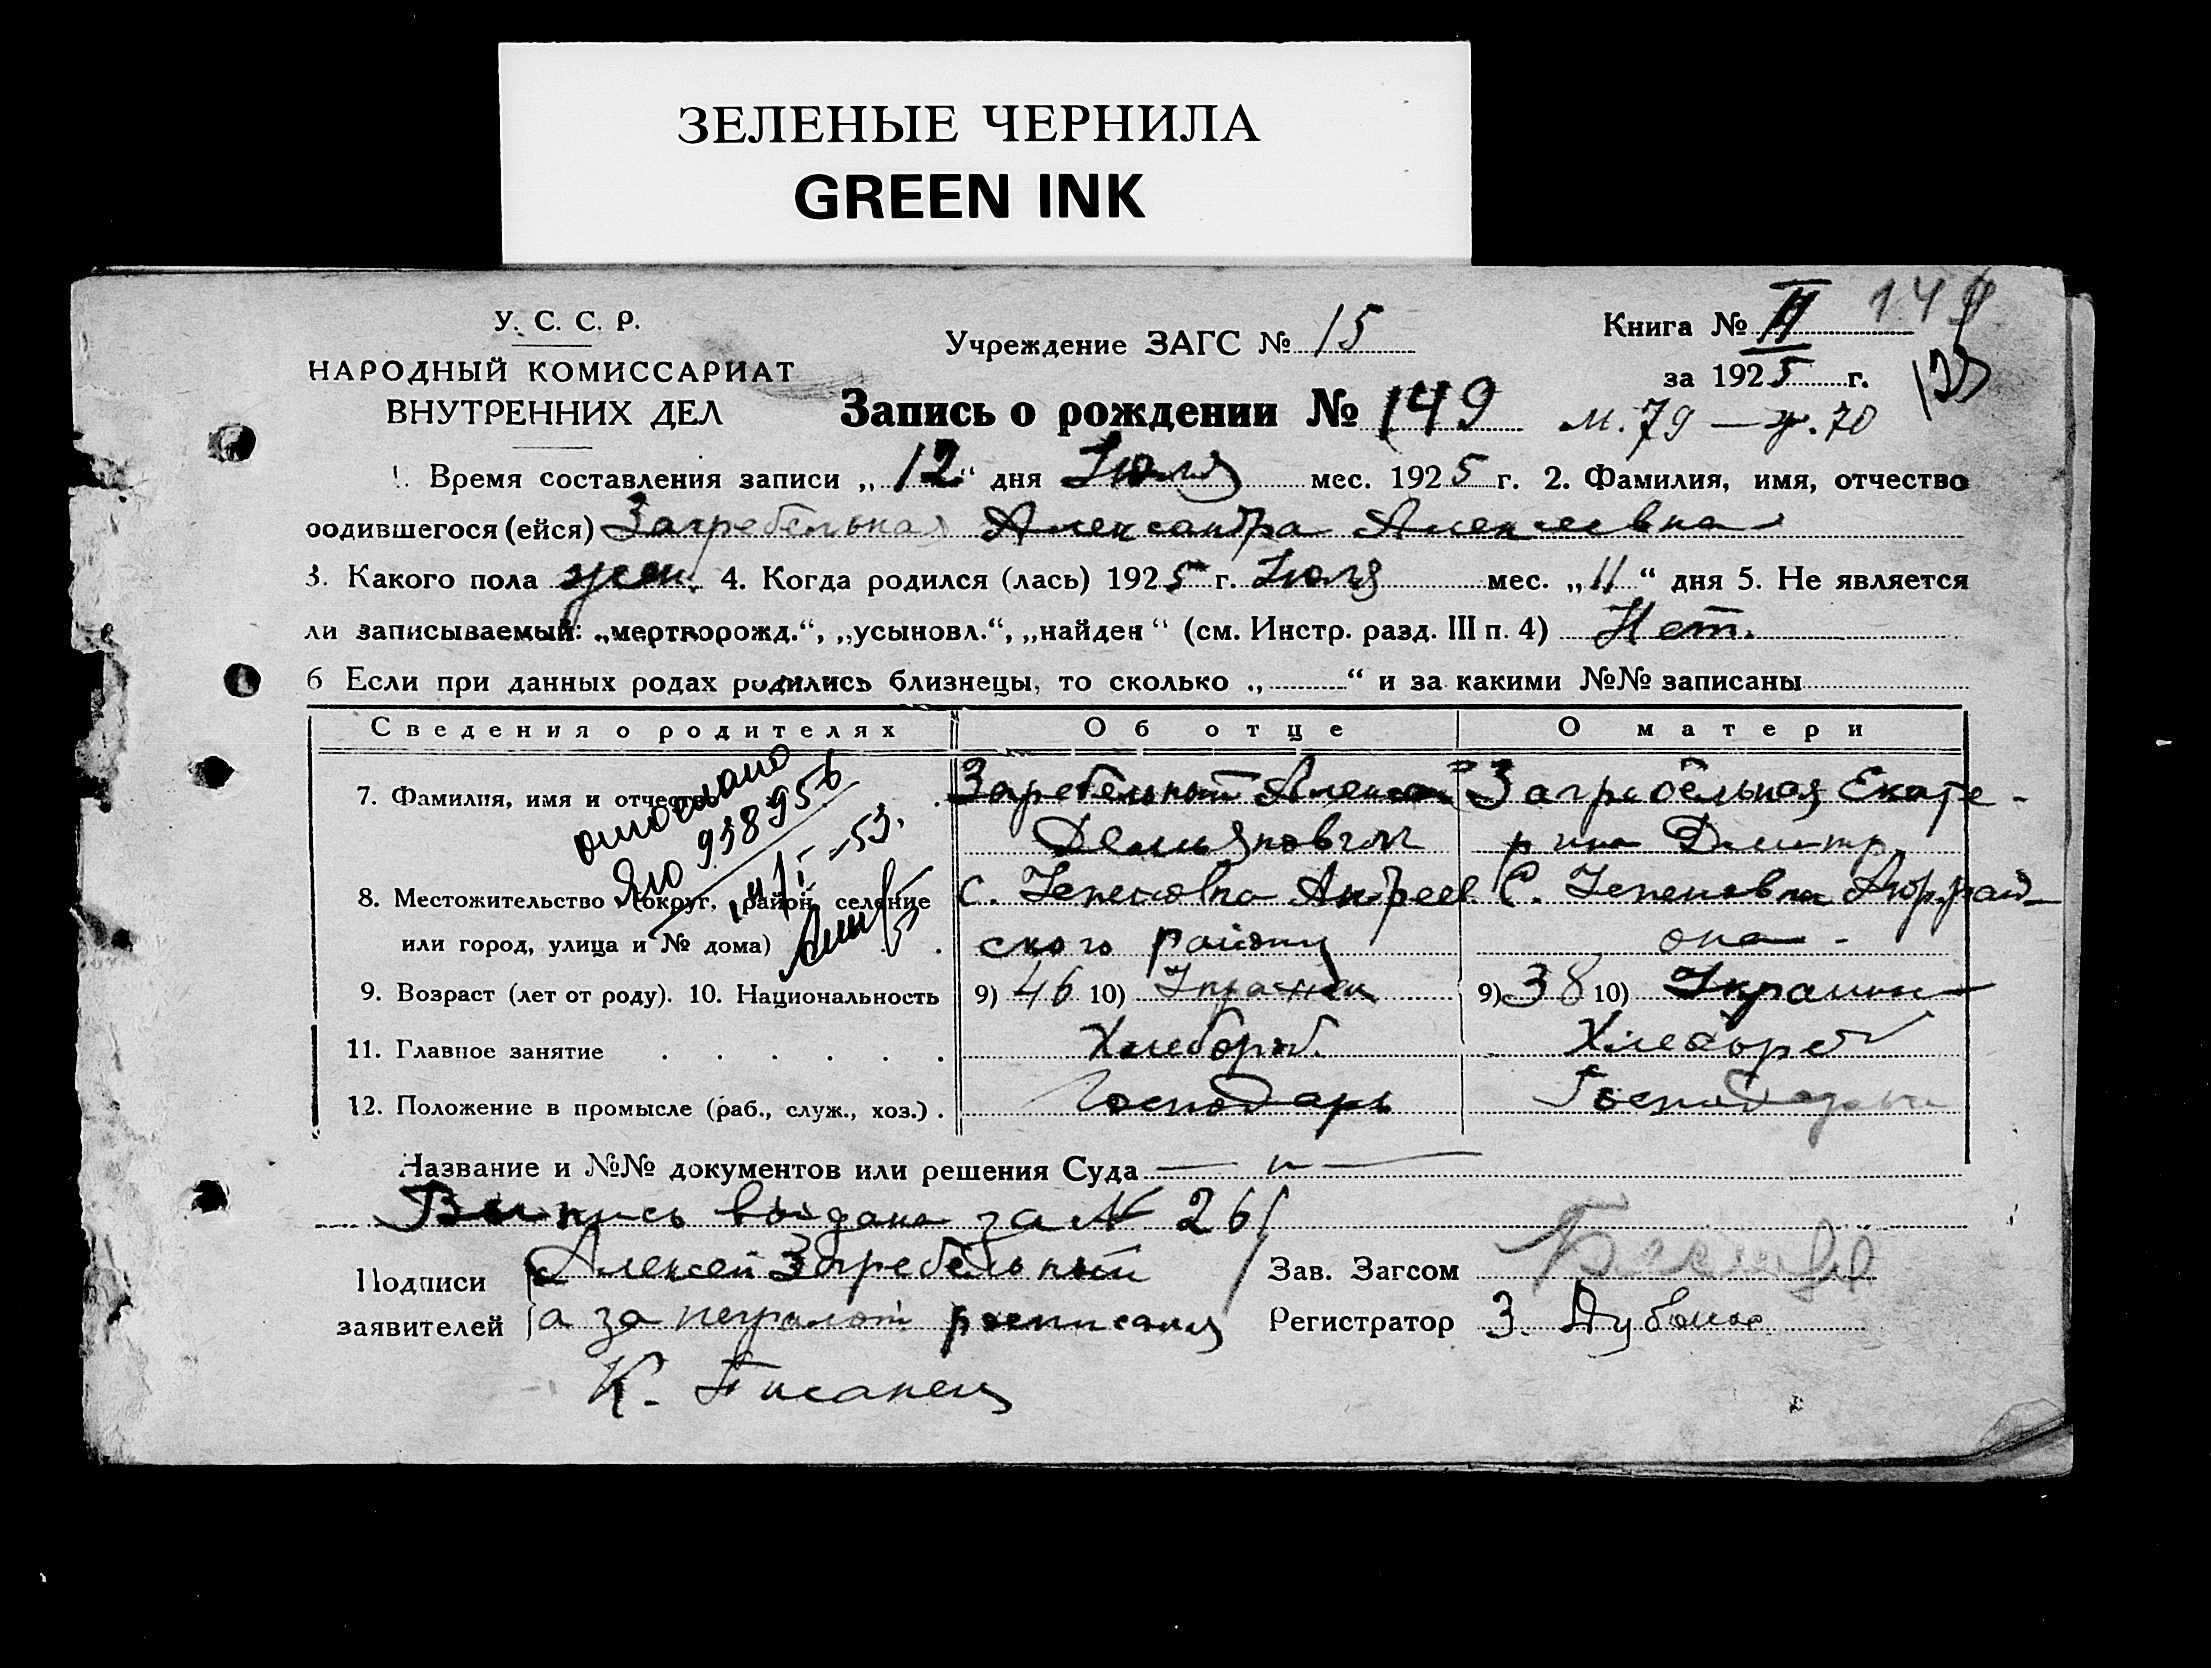 ЗЕЛЕНЫЕ ЧЕРНИЛА
GREEN INK
У. С. С. Р.
НАРОДНЫЙ КОМИССАРИАТ
ВНУТРЕННИХ ДЕЛ
Учреждение ЗАГС № 15
Книга № II 149
за 1925 г.
Запись о рождении № 149 м. 79 — ж. 70
1. Время составления записи „12“ дня Июля мес. 1925 г. 2. Фамилия, имя, отчество
родившегося (ейся) Загребельная Александра Алексеевна
3. Какого пола жен. 4. Когда родился (лась) 1925 г. Июля мес. „11“ дня 5. Не является
ли записываемый: „мертворожд.“, „усыновл.“, „найден“ (см. Инстр. разд. III п. 4) Нет.
6 Если при данных родах родились близнецы, то сколько „ “ и за какими №№ записаны
Сведения о родителях Об отце О матери
7. Фамилия, имя и отчество Загребельный Алексей Загребельная Екате-
Демьянович рина Дмитр.
8. Местожительство (округ, район, селение С. Андреев С.
или город, улица и № дома) ского району она-
9. Возраст (лет от роду). 10. Национальность 9) 46 10) Украинец 9) 38 10) Украин
11. Главное занятие Хлебороб. Хлебороб
12. Положение в промысле (раб., служ., хоз.) Господарь Господарь
отослано
ЯЮ 938956
14/I-53.
Название и №№ документов или решения Суда — " —
Выпись выдана за № 261
Подписи Алексей Загребельный Зав. Загсом
заявителей а за неграмот. росписался Регистратор З.
К. Писанец